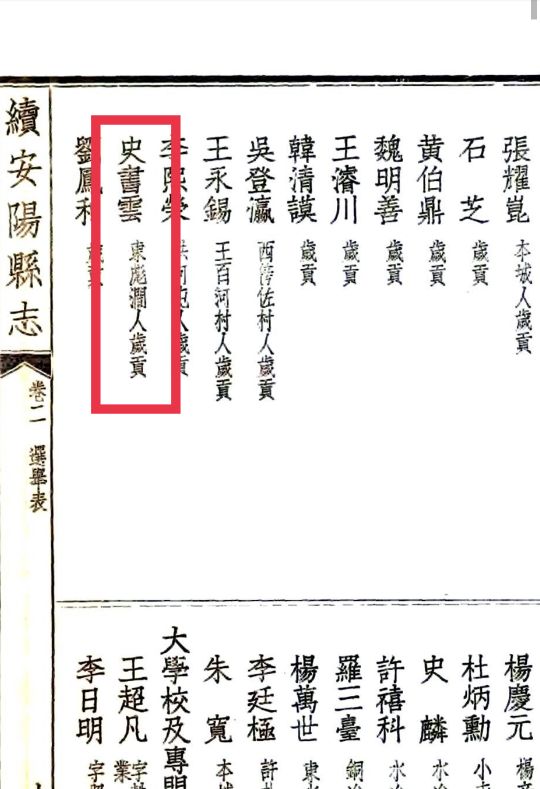 張耀崑 本城人歲貢
石芝 歲貢
黃伯鼎 歲貢
魏明善 歲貢
王濬川 歲貢
韓清謨 歲貢
吳登瀛 西佐村人歲貢
王永錫 王百河村人歲貢
李熙榮 洪河屯人歲貢
史書雲 東彪澗人歲貢
劉鳳和 歲貢
楊慶元 楊
杜炳勳 小
史麟 水冶
許禧科 水冶
羅三臺 銅冶
楊萬世 東
李廷極 許
朱寬 本城
大學校及專門
王超凡 字 業
李日明 字
續安陽縣志
卷二 選舉表